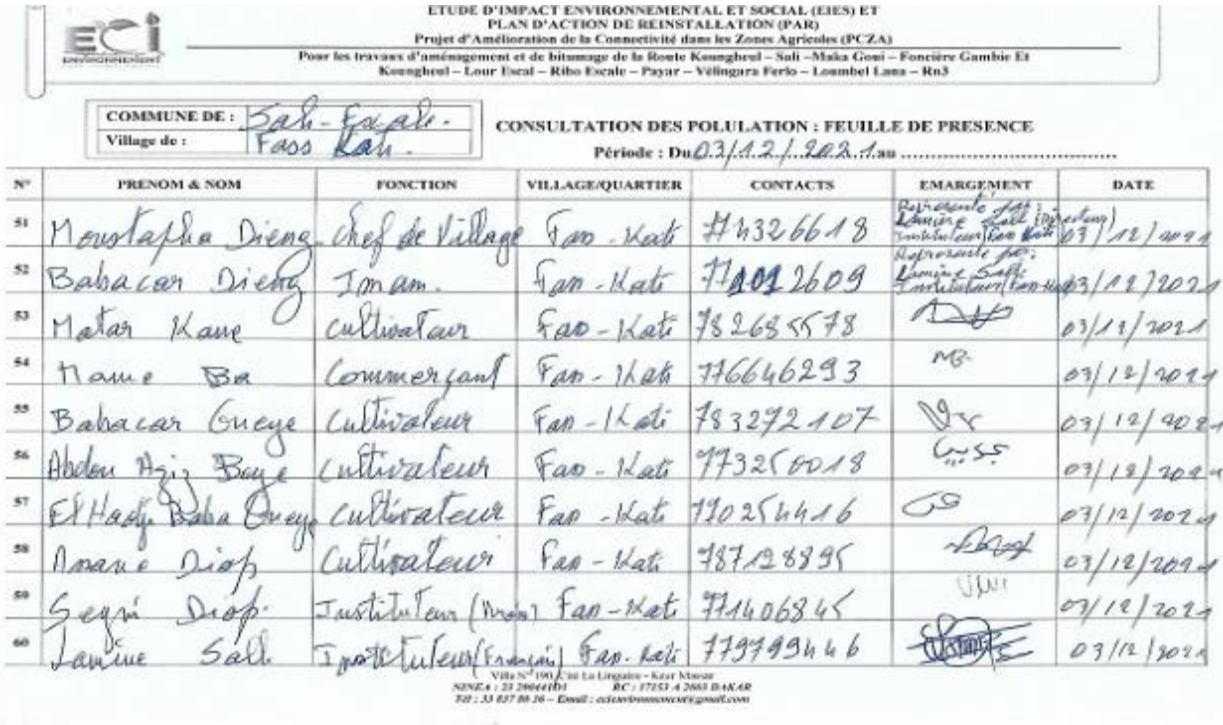 ECi
ENVIRONNEMENT
ETUDE D'IMPACT ENVIRONNEMENTAL ET SOCIAL (EIES) ET
PLAN D'ACTION DE REINSTALLATION (PAR)
Projet d'Amélioration de la Connectivité dans les Zones Agricoles (PCZA)
Pour les travaux d'aménagement et de bitumage de la Route Koungheul – Sali –Maka Goui – Foncière Gambie Et
Koungheul – Lour Escal – Ribo Escale – Payar – Vélingara Ferlo – Loumbel Lana – Rn3
COMMUNE DE : Sali-Escale.
Village de : Fass Kati.
CONSULTATION DES POLULATION : FEUILLE DE PRESENCE
Période : Du 03/12/2021 au
N° PRENOM & NOM FONCTION VILLAGE/QUARTIER CONTACTS EMARGEMENT DATE
51 Moustapha Dieng Chef de Village Fas-Kati 774326618 Représenté par: Lamine Sall (Directeur) Instituteur 03/12/2021
52 Babacar Dieng Imam. Fas-Kati 2609 Représenté par: Lamine Sall Instituteur 03/12/2021
53 Matar Kane Cultivateur Fas-Kati 782685578 03/12/2021
54 Mame Ba Commerçant Fas-Kati 776646293 MB- 03/12/2021
55 Babacar Gueye Cultivateur Fas-Kati 783272107 03/12/2021
56 Abdou Aziz Cultivateur Fas-Kati 773250018 03/12/2021
57 El Hadji Baba Gueye Cultivateur Fas-Kati 770254416 03/12/2021
58 Diop Cultivateur Fas-Kati 787128895 03/12/2021
59 Diop. Instituteur Fas-Kati 771406845 03/12/2021
60 Lamine Sall Instituteur (Français) Fas-Kati 779799446 03/12/2021
Villa N° 190, Cité La Linguère – Keur Massar
NINEA : RC : 17153 A 2003 DAKAR
Tél : 33 837 80 36 – Email : ecienvironnement@gmail.com